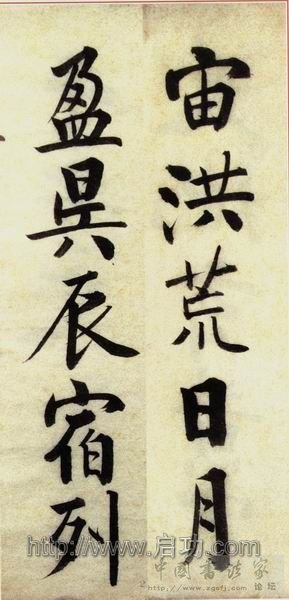 宙洪荒日月
盈昃辰宿列
http://www.启功.com
中国书法家
论坛
http://www.zgsfj.com